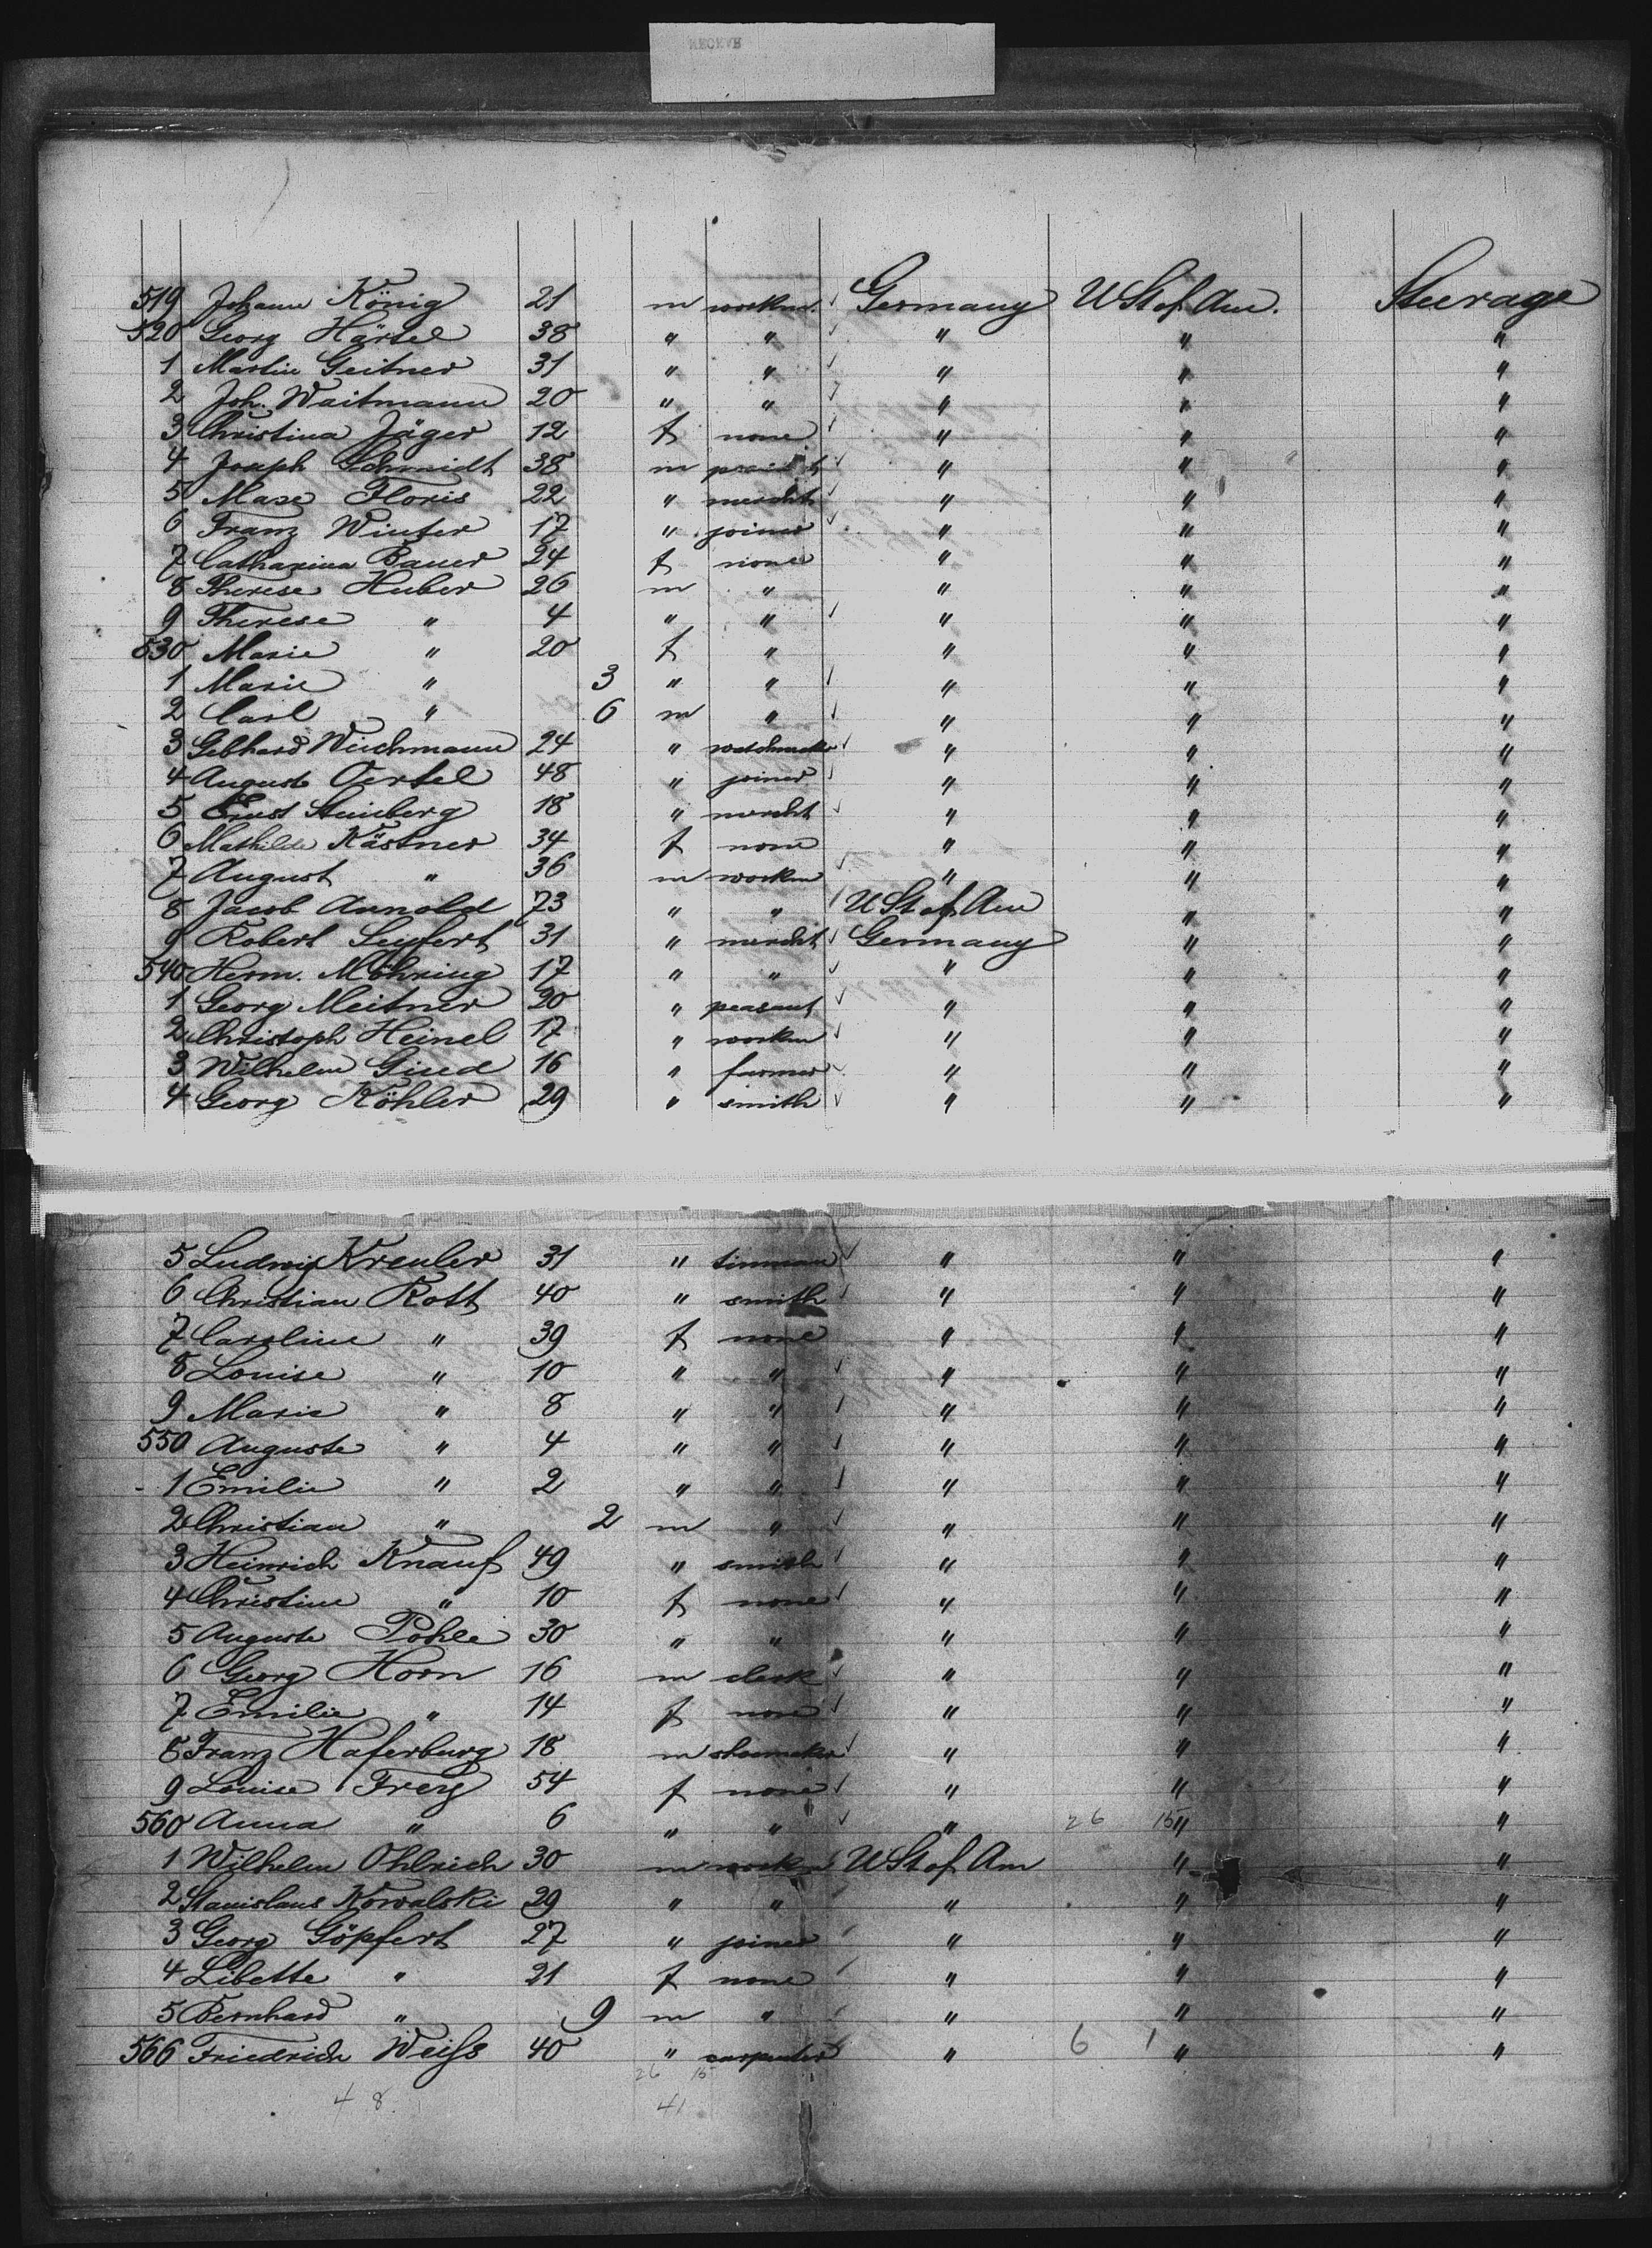 RECEVE
519 Johann König 21 m workm. Germany U St of Am. Steerage
520 Georg Härtel 38 " " " " "
1 Martin Geitner 31 " " " " "
2 Joh. Waitmann 20 " " " " "
3 Christina Jäger 12 f none " " "
4 Joseph Schmidt 38 m " " "
5 Max Floris 22 " mercht " " "
6 Franz Winter 17 " joiner " " "
7 Catharina Bauer 24 f none " " "
8 Therese Huber 26 m " " " "
9 Therese " 4 " " " " "
530 Marie " 20 f " " " "
1 Marie " 3 " " " " "
2 Carl " 6 m " " " "
3 Gebhard Weichmann 24 " watchmaker " " "
4 August Oertel 48 " joiner " " "
5 Ernst Steinberg 18 " mercht " " "
6 Mathilde Kästner 34 f none " " "
7 August " 36 m workm " " "
8 Jacob Arnold 73 " " U St of Am " "
9 Robert Seyfert 31 " mercht Germany " "
540 Herm. Möhring 17 " " " " "
1 Georg Meitner 20 " peasant " " "
2 Christoph Heinel 17 " workm " " "
3 Wilhelm 16 " farmer " " "
4 Georg Köhler 29 " smith " " "
5 Ludwig Kreuler 31 " tinman " " "
6 Christian Rott 40 " smith " " "
7 Caroline " 39 f none " " "
8 Louise " 10 " " " " "
9 Marie " 8 " " " " "
550 Auguste " 4 " " " " "
1 Emilie " 2 " " " " "
2 Christian " 2 m " " " "
3 Heinrich Knauf 49 " smith " " "
4 Christine " 10 f none " " "
5 Auguste Pohle 30 " " " " "
6 Georg Horn 16 m clerk " " "
7 Emilie " 14 f none " " "
8 Franz Haferburg 18 m shoemaker " " "
9 Louise Frey 54 f none " " "
560 Anna " 6 " " " 26 15 " "
1 Wilhelm Ohlrich 30 m workm U St of Am " "
2 Stanislaus Kowalski 29 " " " " "
3 Georg Göpfert 27 " joiner " " "
4 Libette " 21 f none " " "
5 Bernhard " 9 m " " " "
566 Friedrich Weiſs 40 " carpenter " 6 1 " "
26 15
48 41